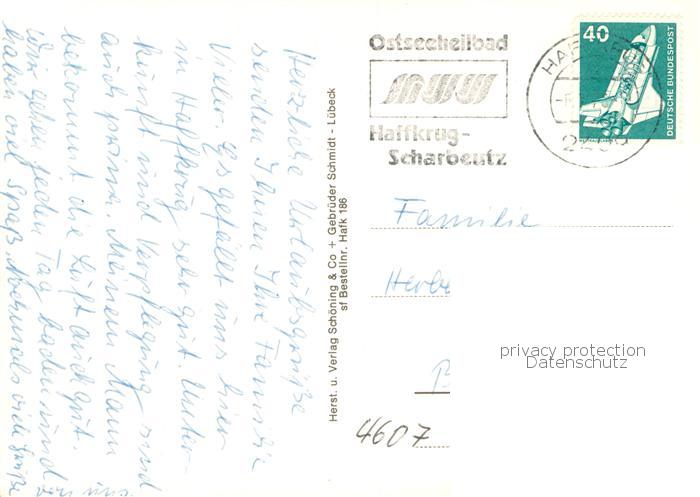 Herzliche Urlaubsgrüße
senden Ihnen Ihre Familie
uns hier
in Haffkrug sehr gut. Unter-
kunft und Verpflegung sind
auch prima. Meinem Mann
bekommt die Luft auch gut.
Wir gehen jeden Tag baden und
haben viel Spaß. Nochmals viele Grüße
Herst. u. Verlag Schöning & Co + Gebrüder Schmidt - Lübeck
sf Bestellnr. Hafk 186
Ostseeheilbad
Haffkrug-
Scharbeutz
40
DEUTSCHE BUNDESPOST
Familie
Herbe
privacy protection
Datenschutz
4607